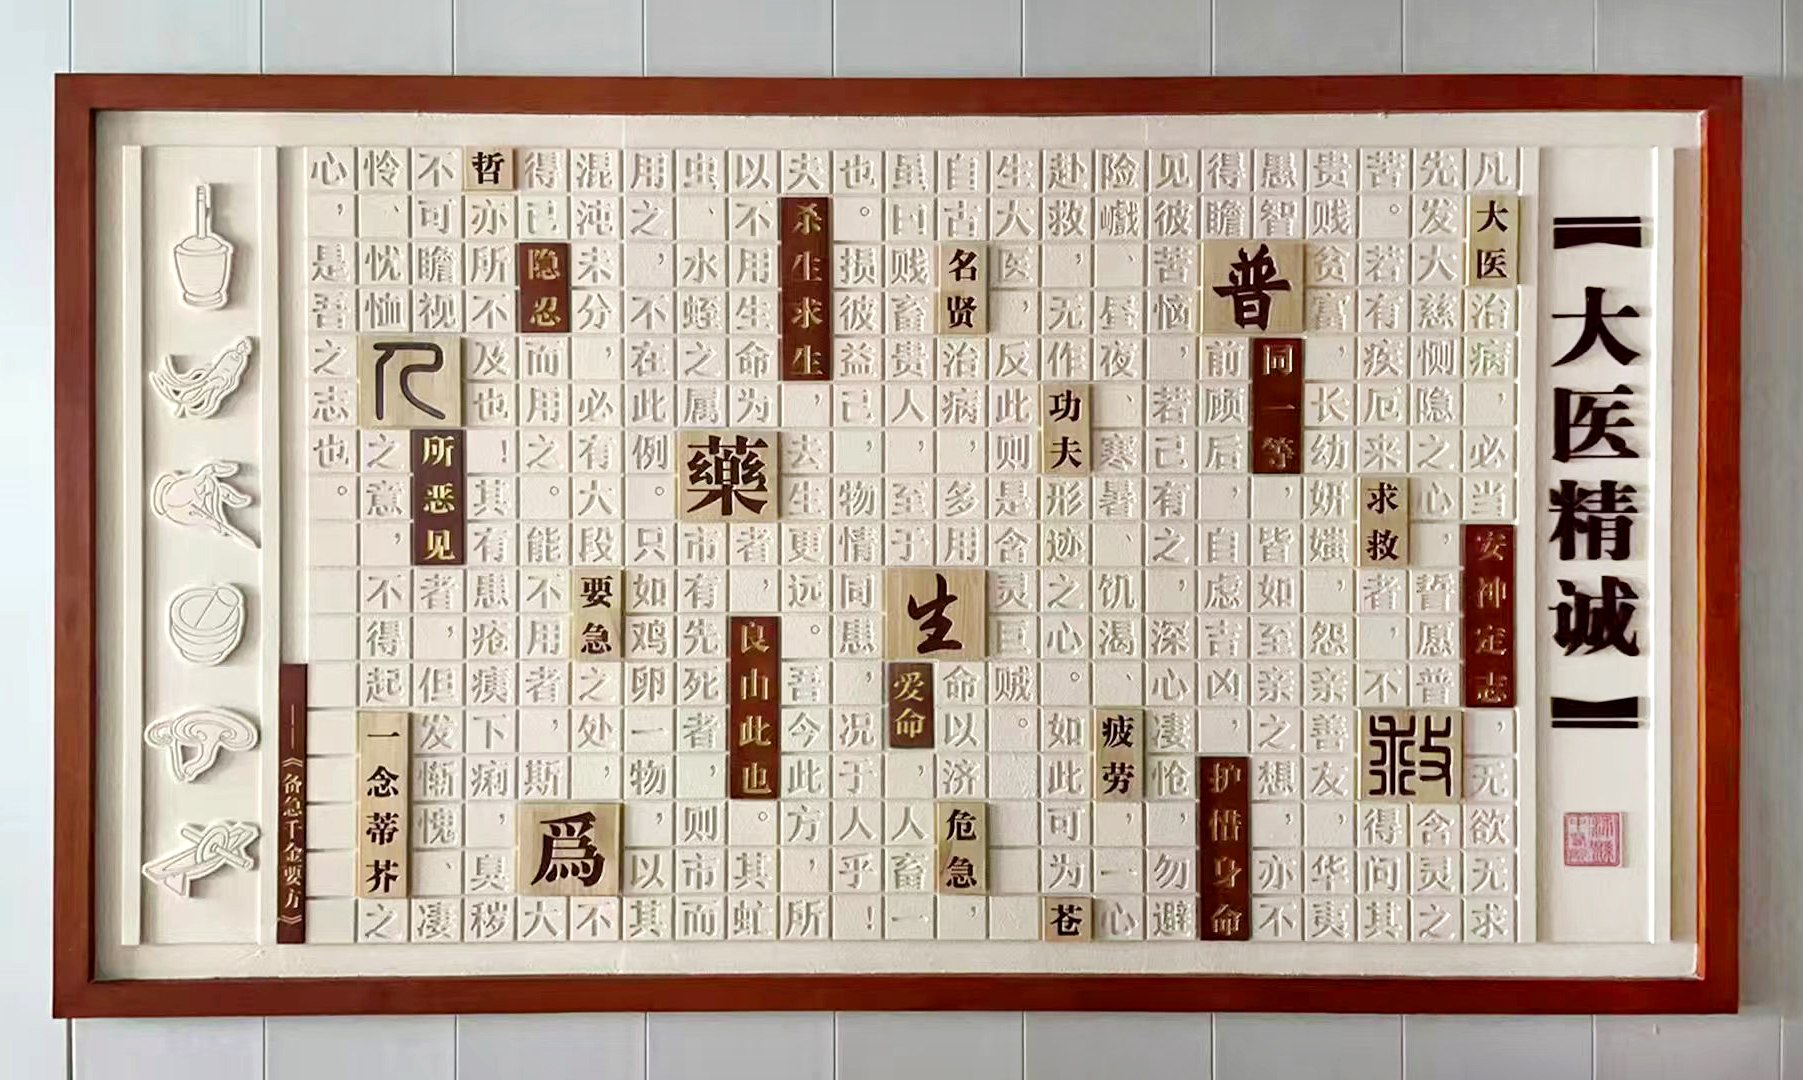 【大医精诚】
凡大医治病，必当安神定志，无欲无求
先发大慈恻隐之心，誓愿普救含灵之
苦。若有疾厄来求救者，不得问其
贵贱贫富，长幼妍媸，怨亲善友，华夷
愚智普同一等，皆如至亲之想，亦不
得瞻前顾后，自虑吉凶，护惜身命
见彼苦恼，若己有之，深心凄怆，勿避
险巇、昼夜、寒暑、饥渴、疲劳，一心
赴救，无作功夫形迹之心。如此可为苍
生大医，反此则是含灵巨贼。
自古名贤治病，多用生命以济危急，
虽曰贱畜贵人，至于爱命，人畜一
也。损彼益己，物情同患，况于人乎！
夫杀生求生，去生更远。吾今此方，所
以不用生命为藥者，良由此也。其虻
虫、水蛭之属，市有先死者，则市而
用之，不在此例。只如鸡卵一物，以其
混沌未分，必有大段要急之处，不
得已隐忍而用之。能不用者，斯爲大
哲亦所不及也！其有患疮痍下痢，臭秽
不可瞻视，人所恶见者，但发惭愧、凄
怜、忧恤之意，不得起一念蒂芥之
心，是吾之志也。
——《备急千金要方》